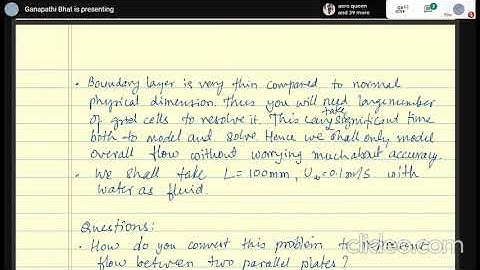 Ganapathi Bhat is presenting
aero queen
and 39 more
• Boundary layer is very thin compared to normal
physical dimension. Thus you will need large number
of grid cells to resolve it. This can take significant time
both to model and solve. Hence we shall only model
overall flow without worrying much about accuracy.
• We shall take L = 100mm, U∞=0.1m/s with
water as fluid.
Questions:
• How do you convert this problem to
flow between two parallel plates?
clideo.com